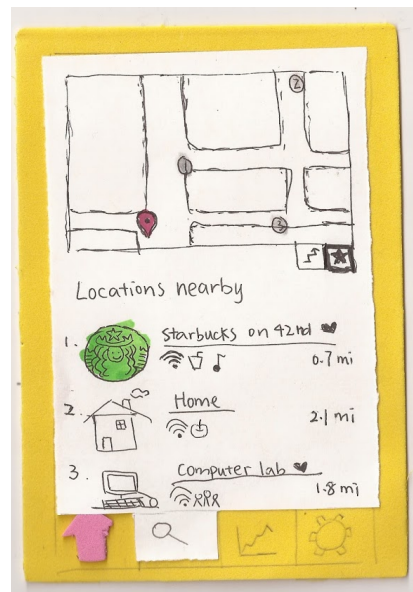 2
1
3
Locations nearby
1. Starbucks on 42nd
0.7 mi
2. Home
2.1 mi
3. Computer lab
1.8 mi